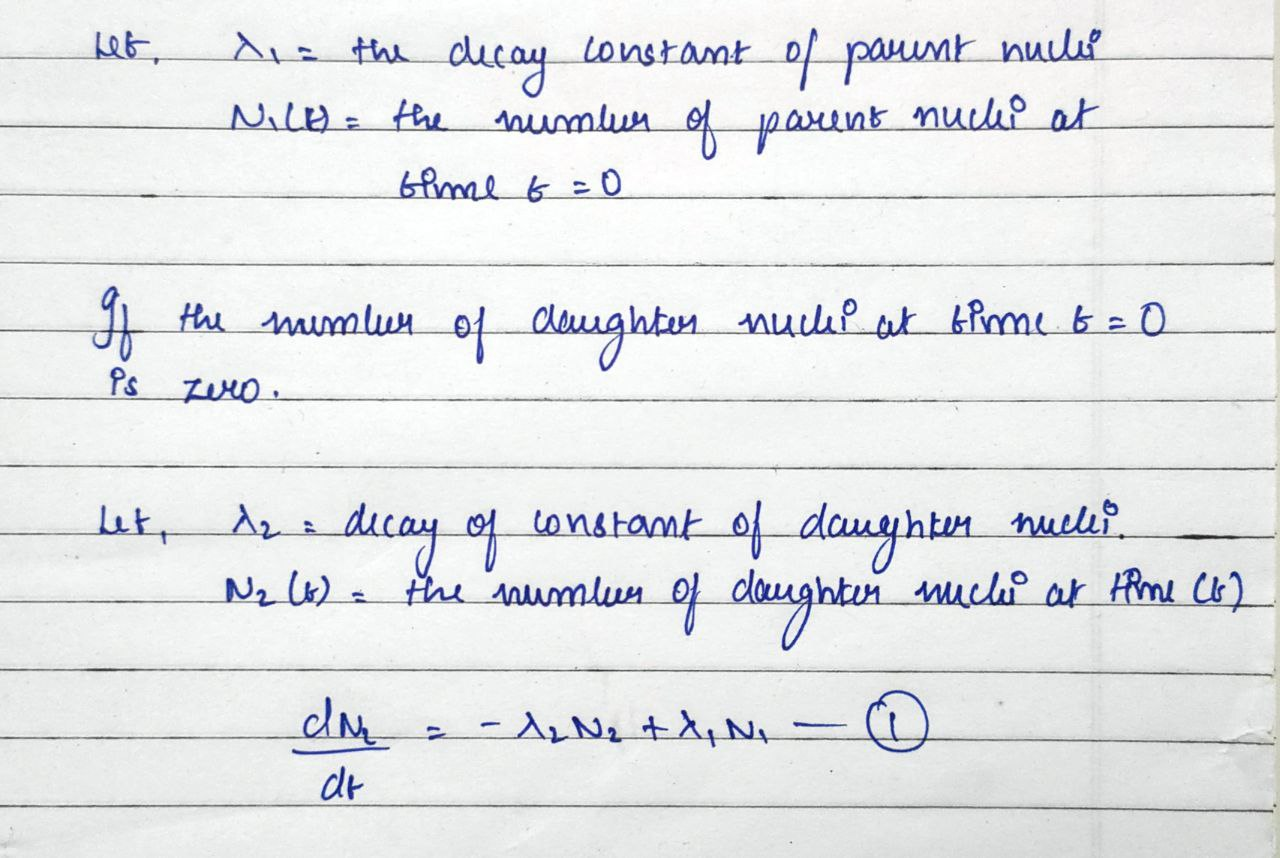 Let, λ₁ = the decay constant of parent nuclei
N₁(t) = the number of parent nuclei at
time t = 0
If the number of daughter nuclei at time t = 0
is zero.
Let, λ₂ = decay of constant of daughter nuclei.
N₂(t) = the number of daughter nuclei at time (t)
dN₂/dt = - λ₂N₂ + λ₁N₁ — ①